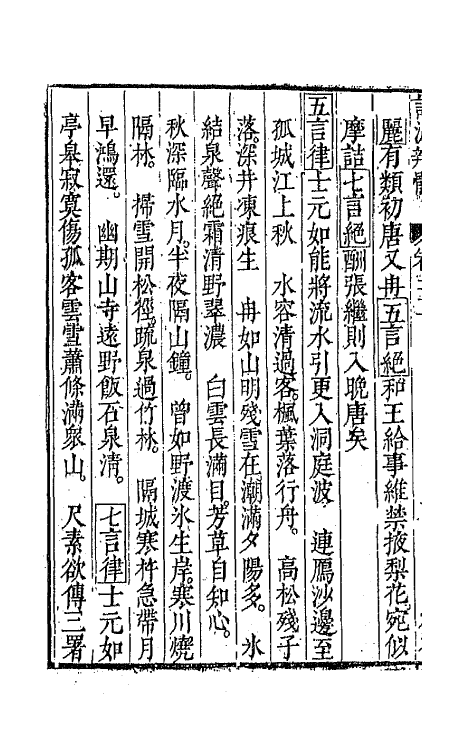 麗有類初唐又冉五言絶和王給事維禁掖梨花宛似
摩詰七言絶酬張繼則入晚唐矣
五言律士元如能將流水引更入洞庭波　連鴈沙邊至
孤城江上秋　水容清過客楓葉落行舟。　高松殘子
落。深井凍痕生　冉如山明殘雪在潮滿夕陽多。　氷
結泉聲絶霜清野翠濃　白雲長滿目。芳草自知心。
秋深臨水月。半夜隔山鐘。　曾如野渡氷生岸。寒川燒
隔林。　掃雪開松徑。䟽泉過竹林。　隔城寒杵急帶月
早鴻還。　幽期山寺遠野飯石泉清。　七言律士元如
亭皋寂寞傷孤客雲雪蕭條滿衆山。　尺素欲傳三署